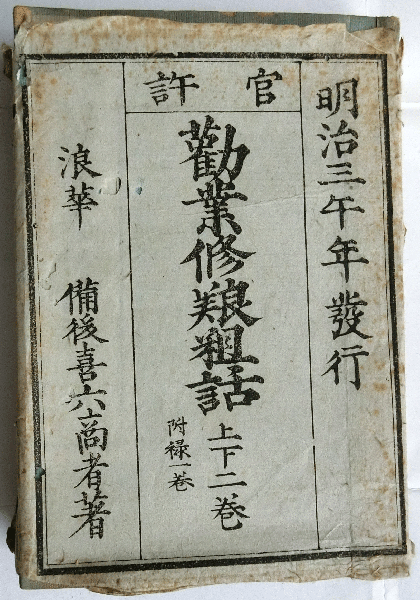 明治三午年發行
官許
勸業修粮粗話
上下二巻
附禄一巻
浪華 備後喜六商者著